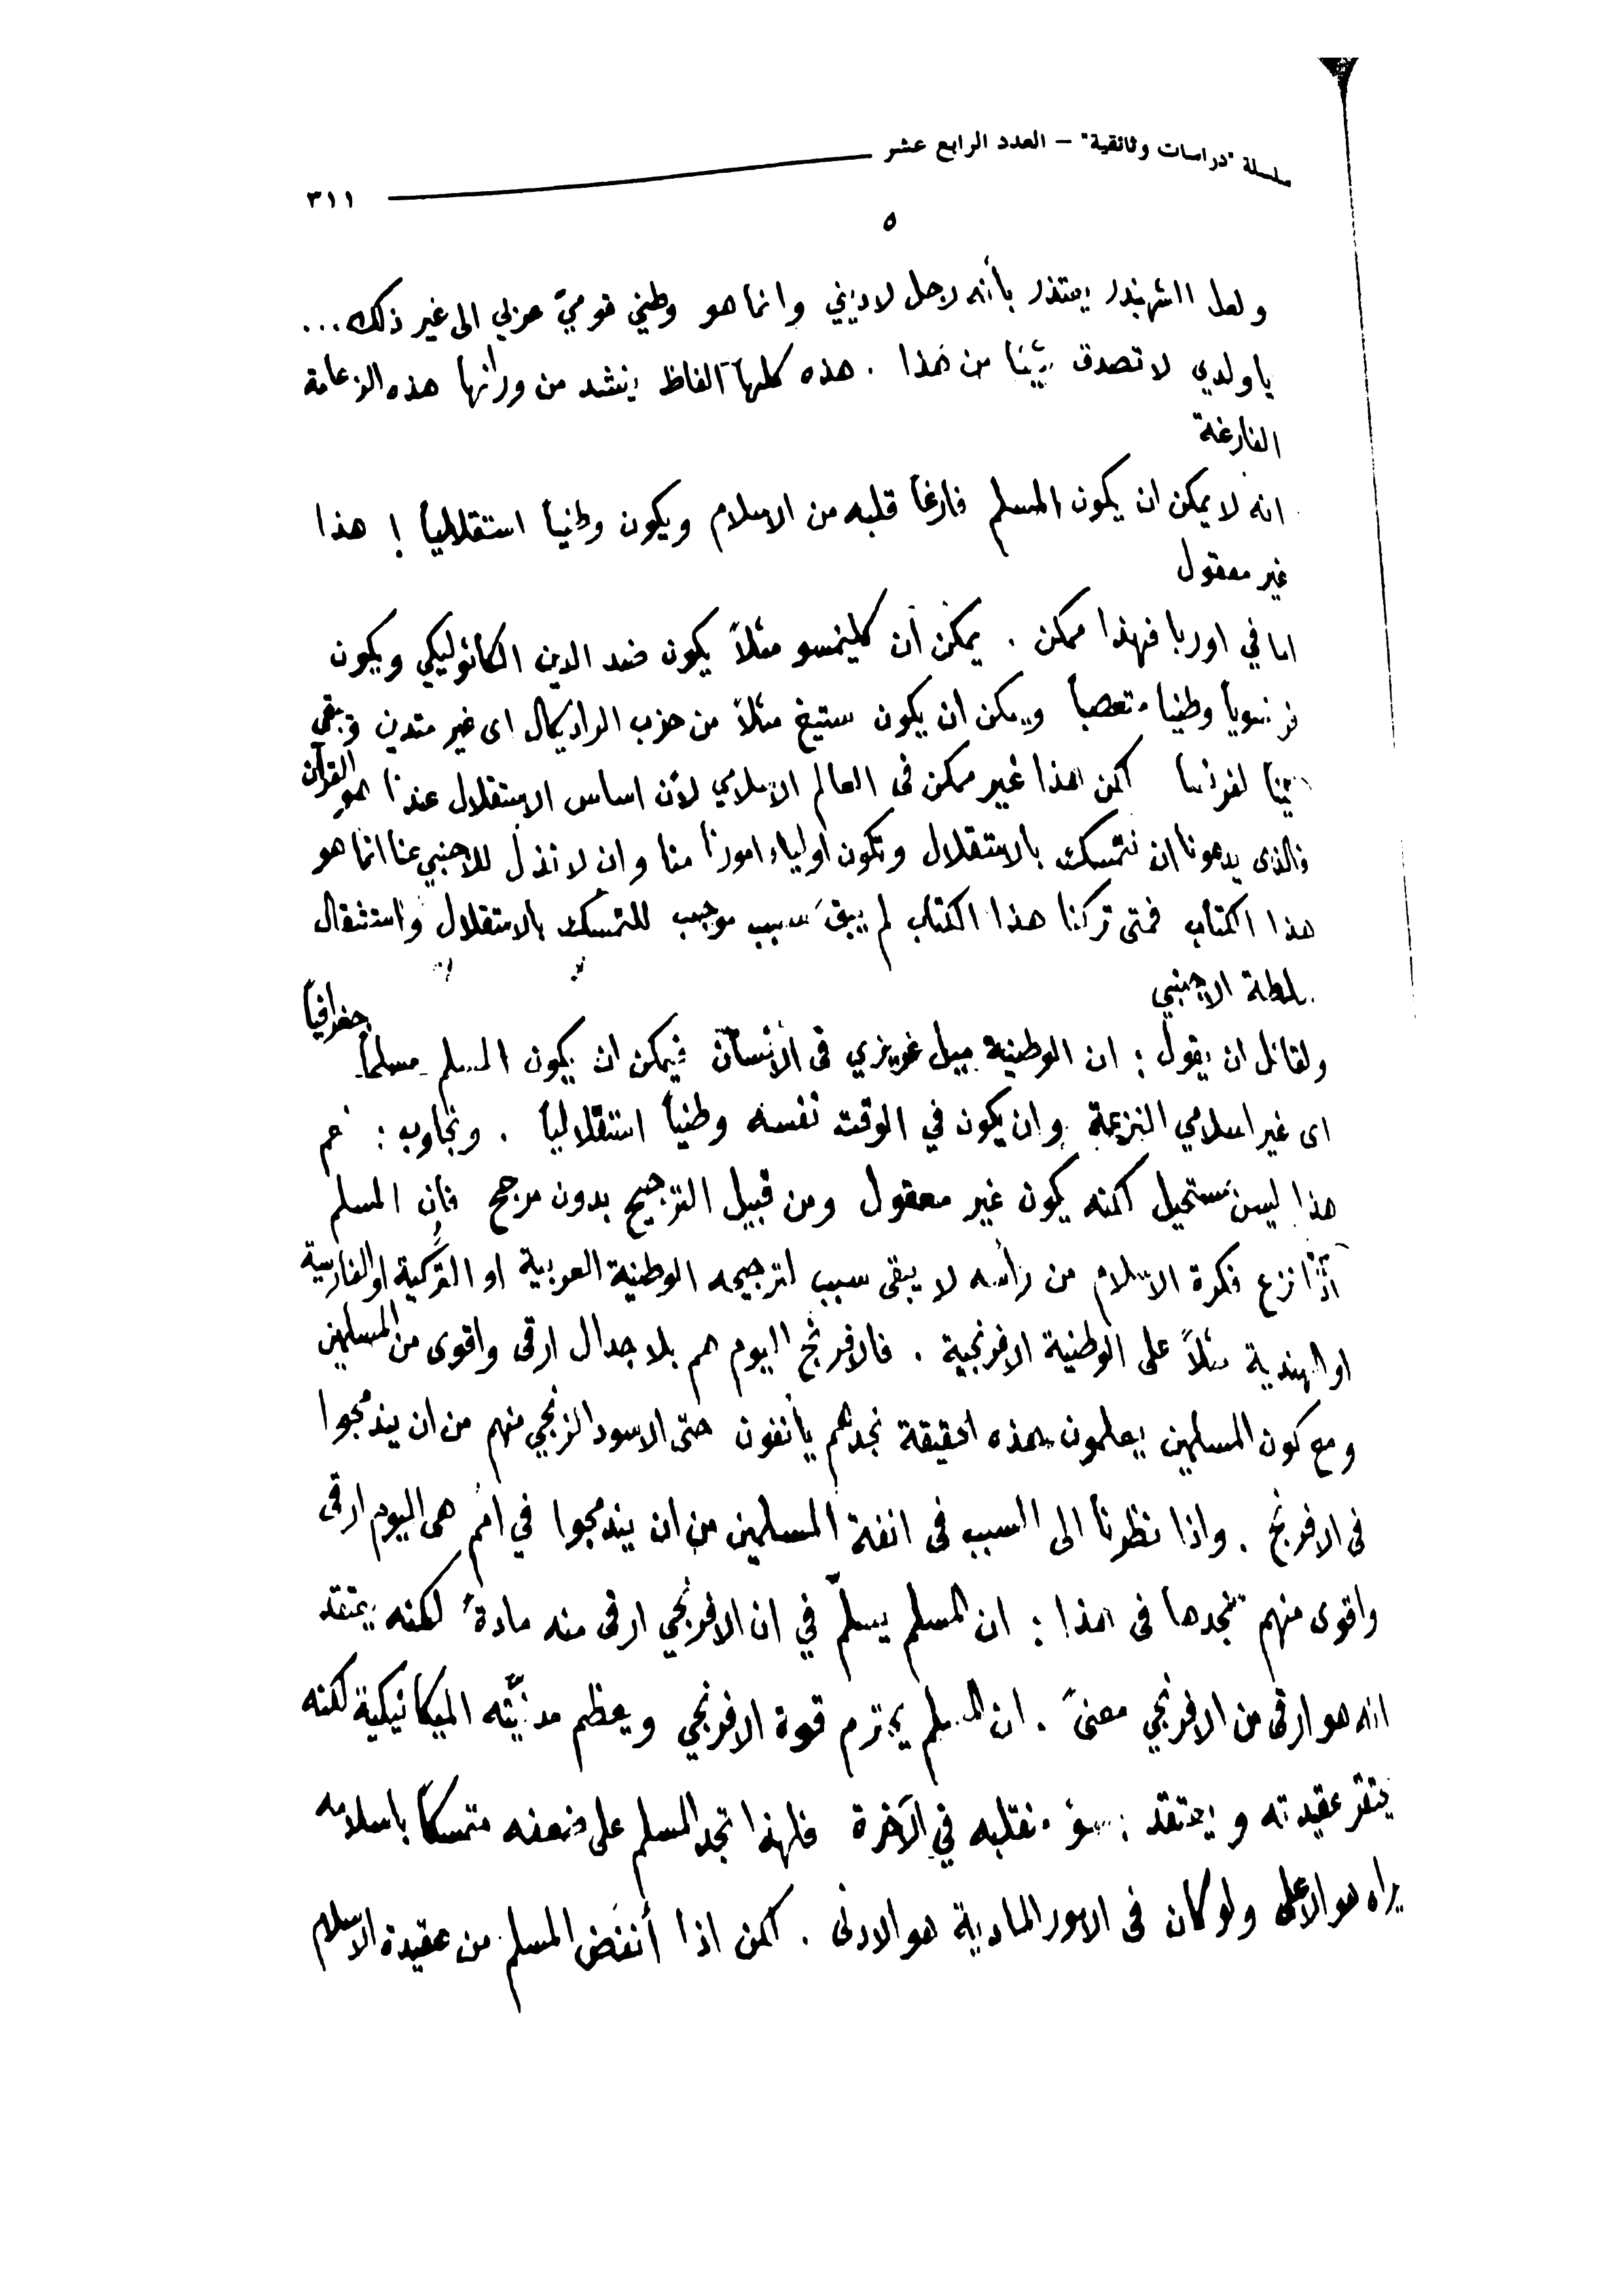 سلسلة "دراسات وثائقية" – العدد الرابع عشر
٣١١
٥
ولعل الشهبندر يعتذر بأنه رجل لاديني وانما هو وطني قوميّ عربي الى غير ذلك...
ياولدي لا تصدق شيئا من هذا . هذه كلها الفاظ ينشد من ورائها هذه الزعامة
الفارغة
انه لا يمكن ان يكون المسلم فارغاً قلبه من الاسلام ويكون وطنياً استقلالياً ! هذا
غير معقول
اما في اوربا فهذا ممكن . يمكن ان كلينمسو مثلاً يكون ضد الدين الكاثوليكي ويكون
فرنسوياً وطنيا متعصباً ويمكن ان يكون ستيغ مثلاً من حزب الراديكال اى غير متدين
لفرنسا لكن هذا غير ممكن فى العالم الاسلامي لأن اساس الاستقلال عندنا هو القرآن
فالذى يدعونا ان نتمسك بالاستقلال وتكون اولياء امورنا منا وان لا نذل للاجنبي عنا انما هو
هذا الكتاب فمتى تركنا هذا الكتاب لم يبقَ سبب موجب للتمسك بالاستقلال واستثقال
سلطة الاجنبي
ولقائل ان يقول : ان الوطنية ميل غريزي فى الانسان فيمكن ان يكون المسلم مسلماً جغرافياً
اى غير اسلامي النزعة وان يكون في الوقت نفسه وطنياً استقلالياً . ونجاوب : نعم
هذا ليس مستحيل لكنه يكون غير معقول ومن قبيل الترجيح بدون مرجح فان المسلم
اذا نزع فكرة الاسلام من رأسه لا يبقى سبب لترجيحه الوطنية العربية او التركية او الفارسية
او الهندية مثلاً على الوطنية الافرنجية . فالافرنج اليوم هم بلا جدال ارقى واقوى من المسلمين
ومع كون المسلمين يعلمون هذه الحقيقة نجدهم يأنفون حتى الاسود الزنجي منهم من ان يندمجوا
فى الافرنج . واذا نظرنا الى السبب فى انفة المسلمين من ان يندمجوا في امم هى اليوم ارقى
واقوى منهم نجدها فى هذا : ان المسلم يسلّم في ان الافرنجي ارقى منه مادةً لكنه يعتقد
انه هو ارقى من الافرنجي معنىً . ان المسلم يحترم قوة الافرنجي ويعظم مدنيّته الميكانيكية لكنه
يحتقر عقيدته ويعتقد بسؤ منقلبه في الآخرة فلهذا تجد المسلم على ضعفه متمسكاً باسلامه
يراه هو الاعلى ولو كان فى الامور المادية هو الادنى . لكن اذا أنفَض المسلم من عقيدة الاسلام